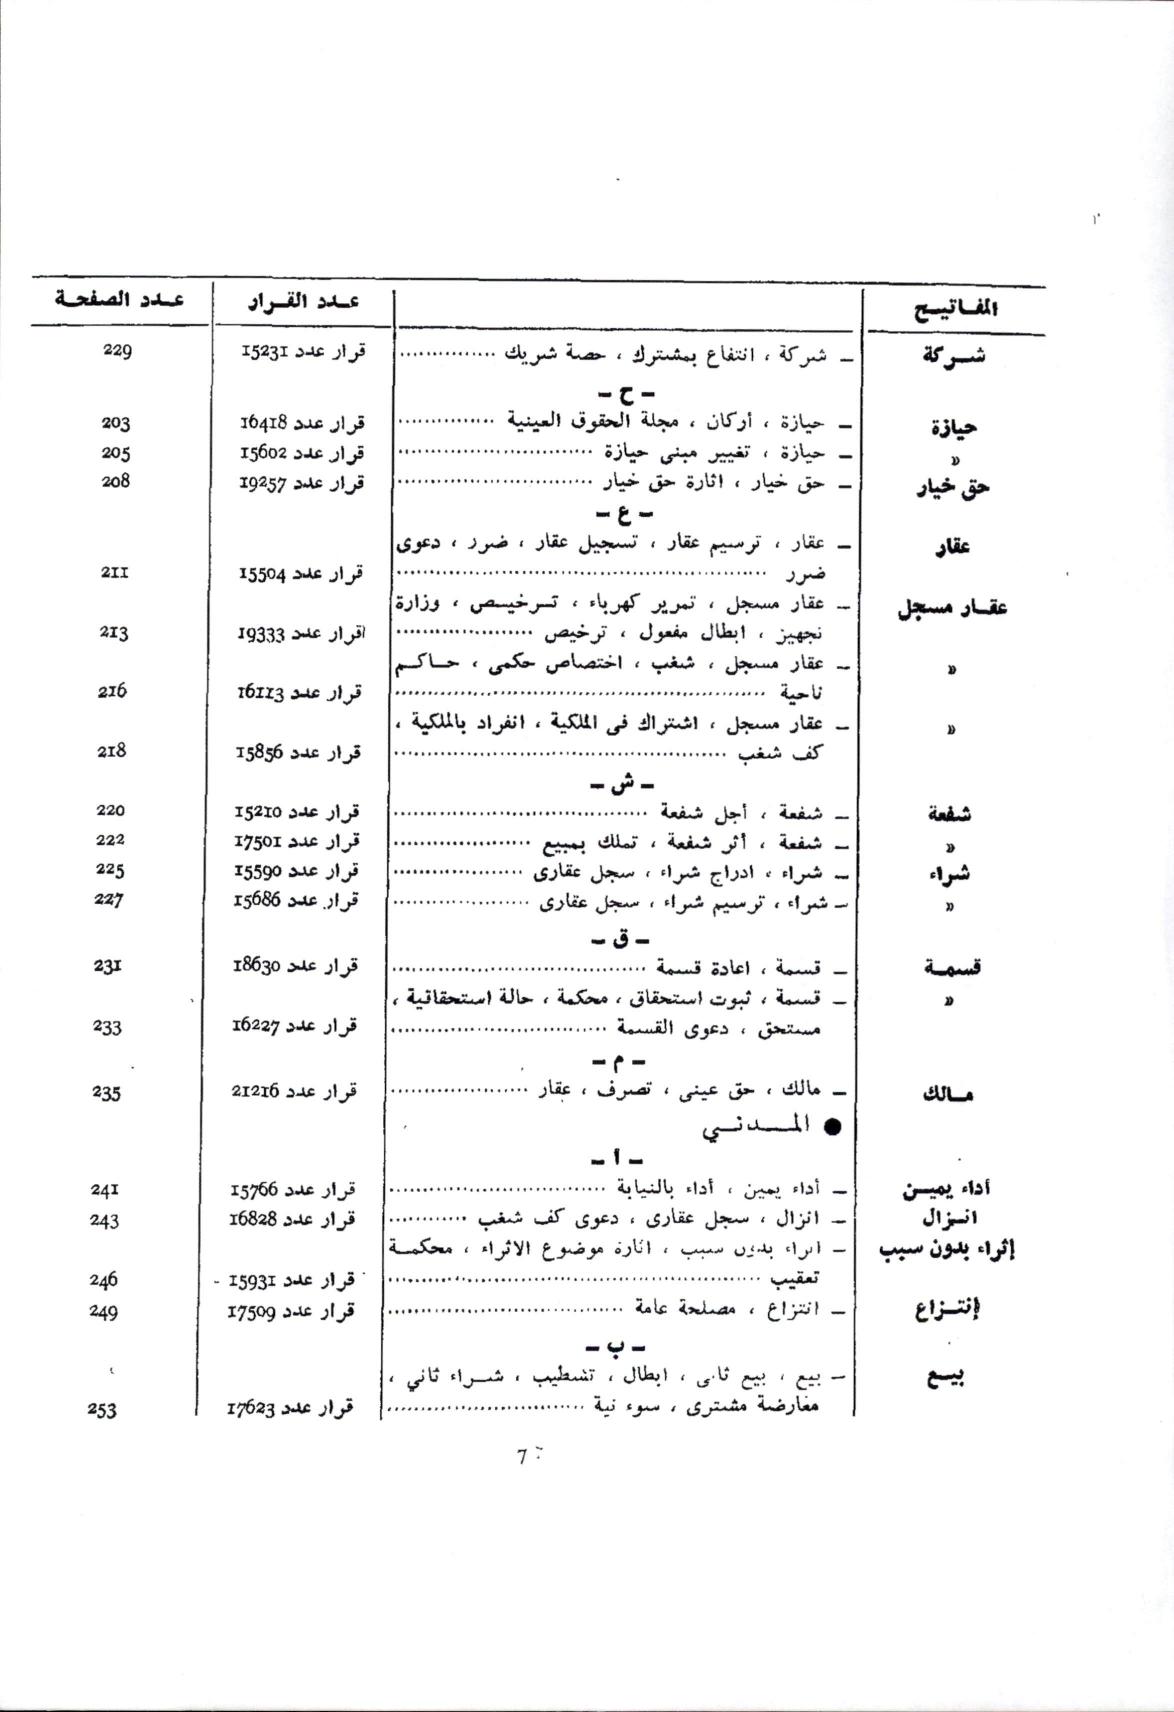 المفاتيح عدد القرار عدد الصفحة
شركة ـ شركة ، انتفاع بمشترك ، حصة شريك .............. قرار عدد 15231 229
ـ ح ـ
حيازة ـ حيازة ، أركان ، مجلة الحقوق العينية .............. قرار عدد 16418 203
« ـ حيازة ، تغيير مبنى حيازة .............. قرار عدد 15602 205
حق خيار ـ حق خيار ، اثارة حق خيار .............. قرار عدد 19257 208
ـ ع ـ
عقار ـ عقار ، ترسيم عقار ، تسجيل عقار ، ضرر ، دعوى
ضرر .............. قرار عدد 15504 211
عقار مسجل ـ عقار مسجل ، تمرير كهرباء ، ترخيص ، وزارة
تجهيز ، ابطال مفعول ، ترخيص .............. قرار عدد 19333 213
« ـ عقار مسجل ، شغب ، اختصاص حكمى ، حاكم
ناحية .............. قرار عدد 16113 216
« ـ عقار مسجل ، اشتراك فى الملكية ، انفراد بالملكية ،
كف شغب .............. قرار عدد 15856 218
ـ ش ـ
شفعة ـ شفعة ، أجل شفعة .............. قرار عدد 15210 220
« ـ شفعة ، أثر شفعة ، تملك بمبيع .............. قرار عدد 17501 222
شراء ـ شراء ، ادراج شراء ، سجل عقارى .............. قرار عدد 15590 225
« ـ شراء ، ترسيم شراء ، سجل عقارى .............. قرار عدد 15686 227
ـ ق ـ
قسمة ـ قسمة ، اعادة قسمة .............. قرار عدد 18630 231
« ـ قسمة ، ثبوت استحقاق ، محكمة ، حالة استحقاقية ،
مستحق ، دعوى القسمة .............. قرار عدد 16227 233
ـ م ـ
مالك ـ مالك ، حق عينى ، تصرف ، عقار .............. قرار عدد 21216 235
● المدني
ـ ا ـ
أداء يمين ـ أداء يمين ، أداء بالنيابة .............. قرار عدد 15766 241
انزال ـ انزال ، سجل عقارى ، دعوى كف شغب .............. قرار عدد 16828 243
إثراء بدون سبب ـ اثراء بدون سبب ، اثارة موضوع الاثراء ، محكمة
تعقيب .............. قرار عدد 15931 246
إنتزاع ـ انتزاع ، مصلحة عامة .............. قرار عدد 17509 249
ـ ب ـ
بيع ـ بيع ، بيع ثانى ، ابطال ، تشطيب ، شراء ثاني ،
معارضة مشترى ، سوء نية .............. قرار عدد 17623 253
7